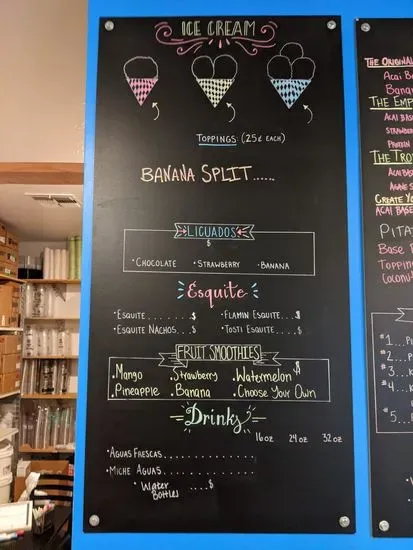 ICE CREAM
TOPPINGS: (25¢ EACH)
BANANA SPLIT......
LICUADOS
$
• CHOCOLATE • STRAWBERRY • BANANA
Esquite
• ESQUITE.......$ • FLAMIN ESQUITE...$
• ESQUITE NACHOS..$ • TOSTI ESQUITE....$
FRUIT SMOOTHIES
$
• Mango • Strawberry • Watermelon
• Pineapple • Banana • Choose Your Own
Drinks
16 oz 24 oz 32 oz
• AGUAS FRESCAS.............
• MICHE AGUAS.............
• Water Bottles ....$
THE ORIGINAL
ACAI
BANAN
THE
ACAI BASE
STRAWBERR
PROTEIN
THE TRO
ACAI BAS
CREATE YO
ACAI BASE
PITA
Base
Topping
Coconut
#1...
#2...
#3...
#4...
#5...